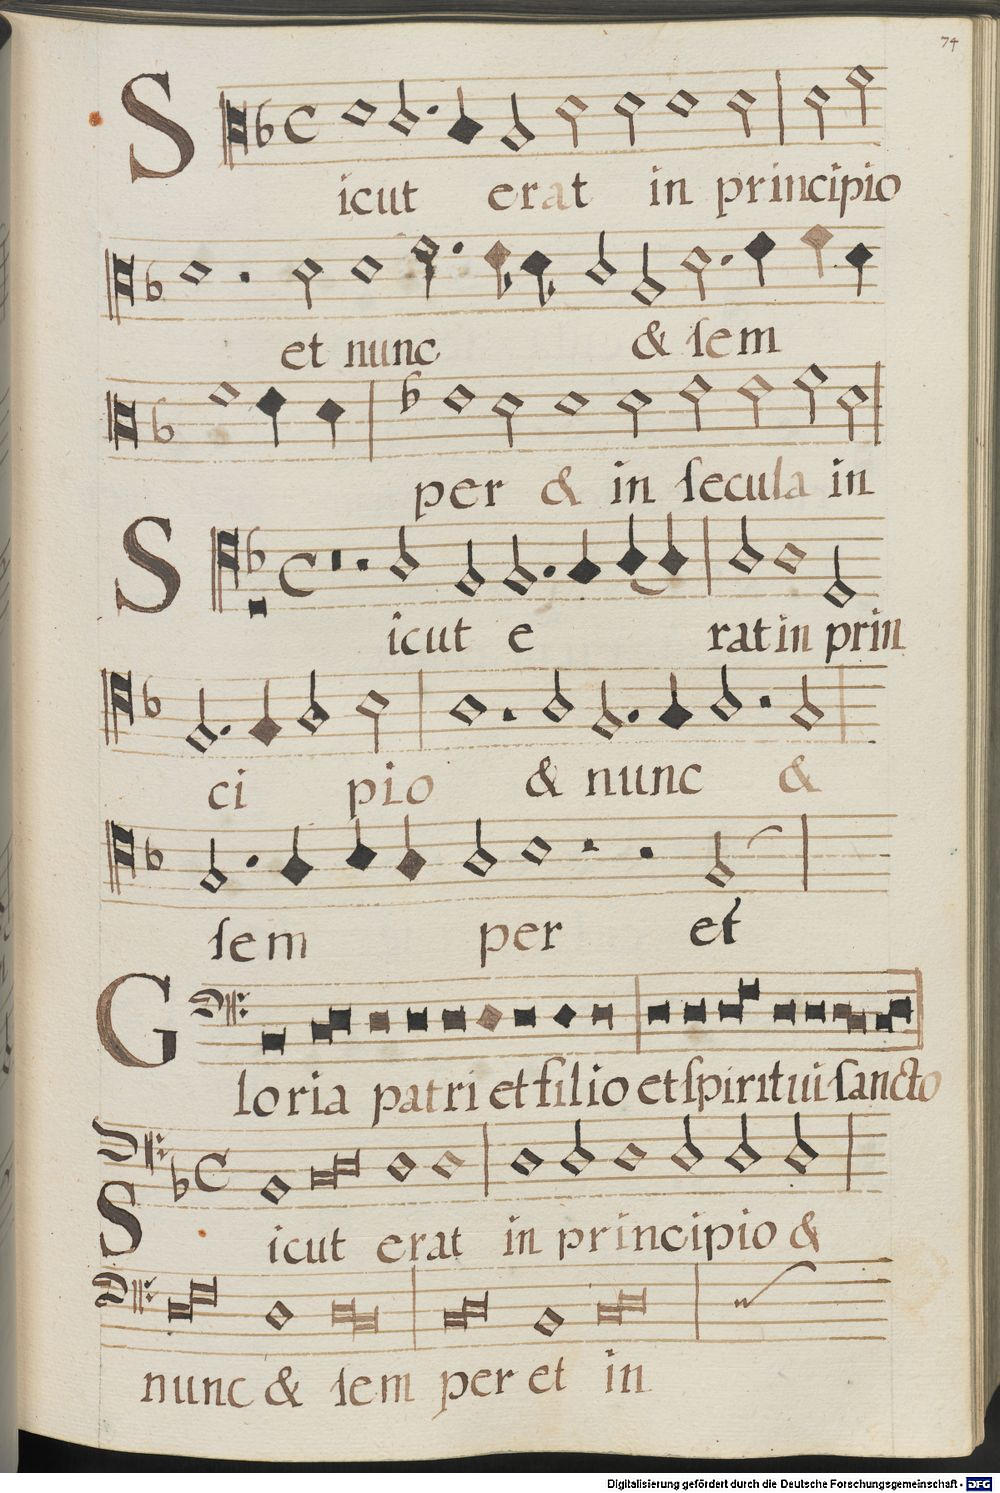 74
Sicut erat in principio
et nunc & sem
per & in secula in
Sicut e rat in prin
ci pio & nunc &
sem per et
Gloria patri et filio et spiritui sancto
Sicut erat in principio &
nunc & sem per et in
Digitalisierung gefördert durch die Deutsche Forschungsgemeinschaft - DFG